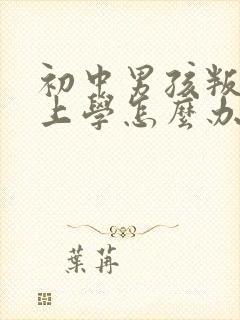 初中男孩叛
上學怎麼办
葉苒